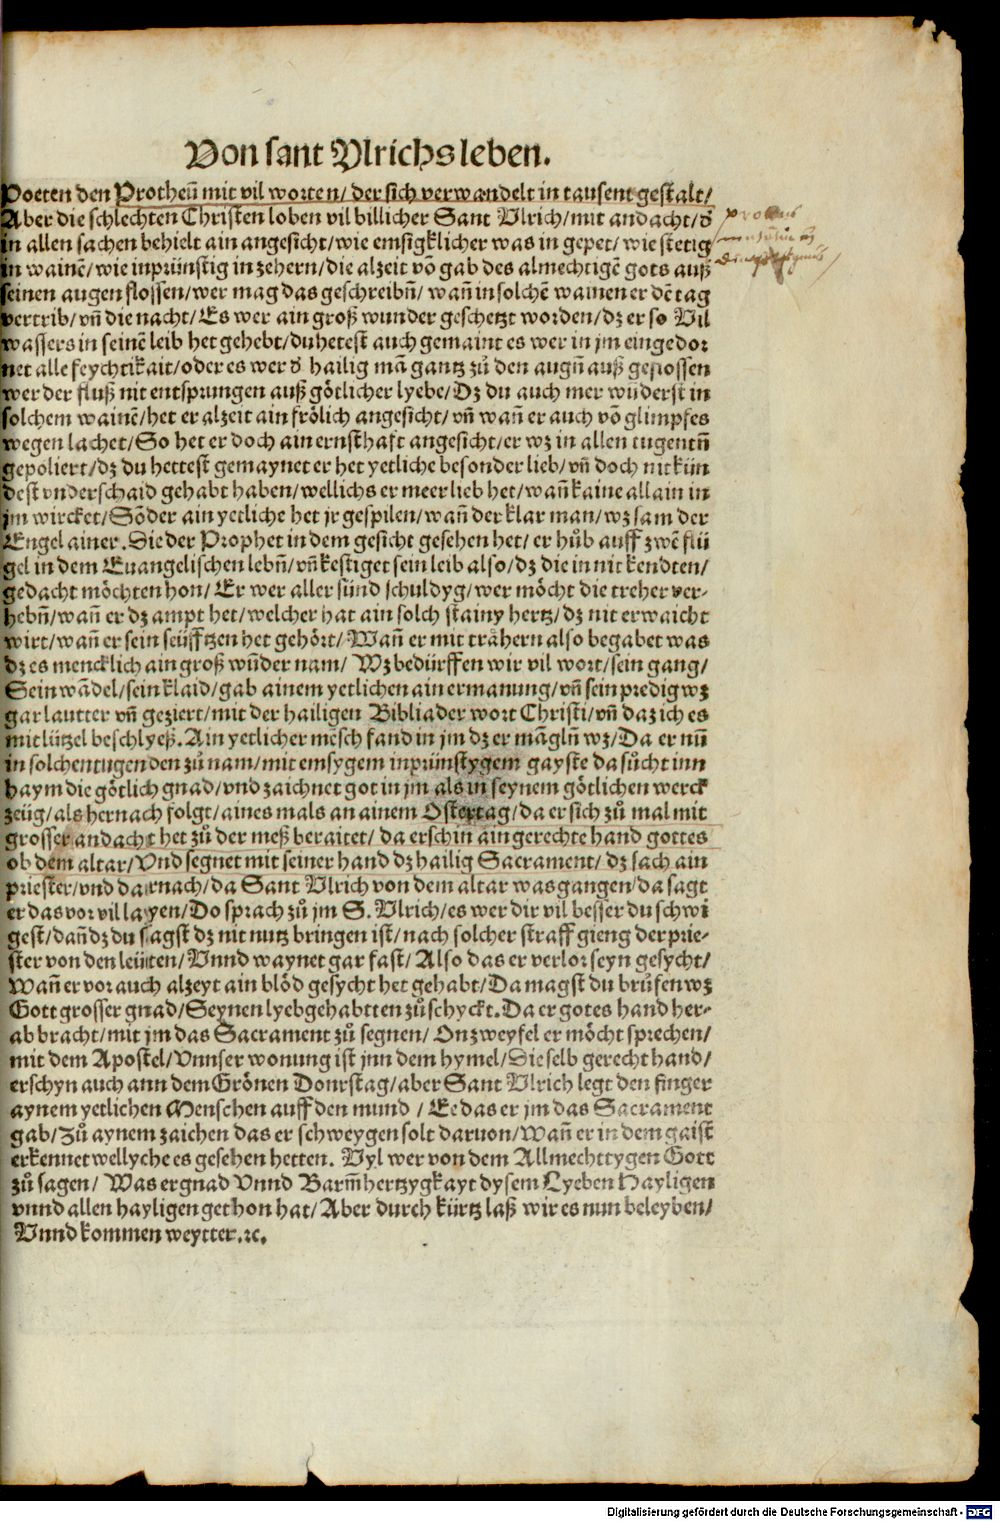 Von sant Vlrichs leben.
Poeten den Protheū mit vil worten/ der sich verwandelt in tausent gestalt/
Aber die schlechten Christen loben vil billicher Sant Vlrich/mit andacht/ď
in allen sachen behielt ain angesicht/wie emsigklicher was in gepet/wie stetig
in wainē/wie inprünstig in zehern/die alzeit vō gab des almechtigē gots auß
seinen augen flossen/wer mag das geschreibn̄/ wan̄ in solchē wainen er dē tag
vertrib/vn̄ die nacht/ Es wer ain groß wunder geschetzt worden/dz er so Vil
wassers in seinē leib het gehebt/du hetest auch gemaint es wer in jm eingedor
net alle feychtikait/oder es wer ď hailig mā gantz zů den augn̄ auß geflossen
wer der fluß nit entsprungen auß götlicher lyebe/Dz du auch mer wūderst in
solchem wainē/het er alzeit ain frölich angesicht/vn̄ wan̄ er auch vō glimpfes
wegen lachet/So het er doch ain ernsthaft angesicht/er wz in allen tugentn̄
gepoliert/dz du hettest gemaynet er het yetliche besonder lieb/vn̄ doch nit kün
dest vnderschaid gehabt haben/wellichs er meer lieb het/wan̄ kaine allain in
jm wircket/Sōder ain yetliche het jr gespilen/wan̄ der klar man/wz sam der
Engel ainer. Sie der Prophet in dem gesicht gesehen het/er hůb auff zwē flü
gel in dem Euangelischen lebn̄/vn̄ kestiget sein leib also/dz die in nit kendten/
gedacht möchten hon/ Er wer aller sünd schuldyg/wer möcht die treher ver-
hebn̄/wan̄ er dz ampt het/welcher hat ain solch stainy hertz/dz nit erwaicht
wirt/wan̄ er sein seüfftzen het gehört/Wan̄ er mit trähern also begabet was
dz es mencklich ain groß wūder nam/ Wz bedürffen wir vil wort/sein gang/
Sein wādel/sein klaid/gab ainem yetlichen ain ermanung/vn̄ sein predig wz
gar lautter vn̄ geziert/mit der hailigen Bibliader wort Christi/vn̄ daz ich es
mit lützel beschlyeß. Ain yetlicher mēsch fand in jm dz er māgln̄ wz/Da er nū
in solchen tugenden zů nam/mit emsygem inprünstygem gayste da sůcht inn
haym die götlich gnad/vnd zaichnet got in jm als in seynem götlichen werck
zeüg/als hernach folgt/aines mals an ainem Ostertag/da er sich zů mal mit
grosser andacht het zů der meß beraitet/ da erschin ain gerechte hand gottes
ob dem altar/Vnd segnet mit seiner hand dz hailig Sacrament/ dz sach ain
priester/vnd darnach/da Sant Vlrich von dem altar was gangen/da sagt
er das vor vil layen/Do sprach zů jm S. Vlrich/es wer dir vil besser du schwi
gest/dan̄ dz du sagst dz nit nutz bringen ist/nach solcher straff gieng der prie-
ster von den leüten/Vnnd waynet gar fast/Also das er verlor seyn gesycht/
Wan̄ er vor auch alzeyt ain blöd gesycht het gehabt/Da magst du brüfen wz
Gott grosser gnad/Seynen lyebgehabtten zů schyckt. Da er gotes hand her-
ab bracht/mit jm das Sacrament zů segnen/ On zweyfel er möcht sprechen/
mit dem Apostel/Vnnser wonung ist jnn dem hymel/Die selb gerecht hand/
erschyn auch ann dem Grönen Donrstag/aber Sant Vlrich legt den finger
aynem yetlichen Menschen auff den mund / Ee das er jm das Sacrament
gab/Zů aynem zaichen das er schweygen solt daruon/Wan̄ er in dem gaist
erkennet wellyche es gesehen hetten. Vyl wer von dem Allmechttygen Gott
zů sagen/ Was er gnad Vnnd Barm̄hertzygkayt dysem Lyeben Hayligen
vnnd allen hayligen gethon hat/Aber durch kürtz laß wir es nun beleyben/
Vnnd kommen weytter.ꝛc.
Digitalisierung gefördert durch die Deutsche Forschungsgemeinschaft - DFG